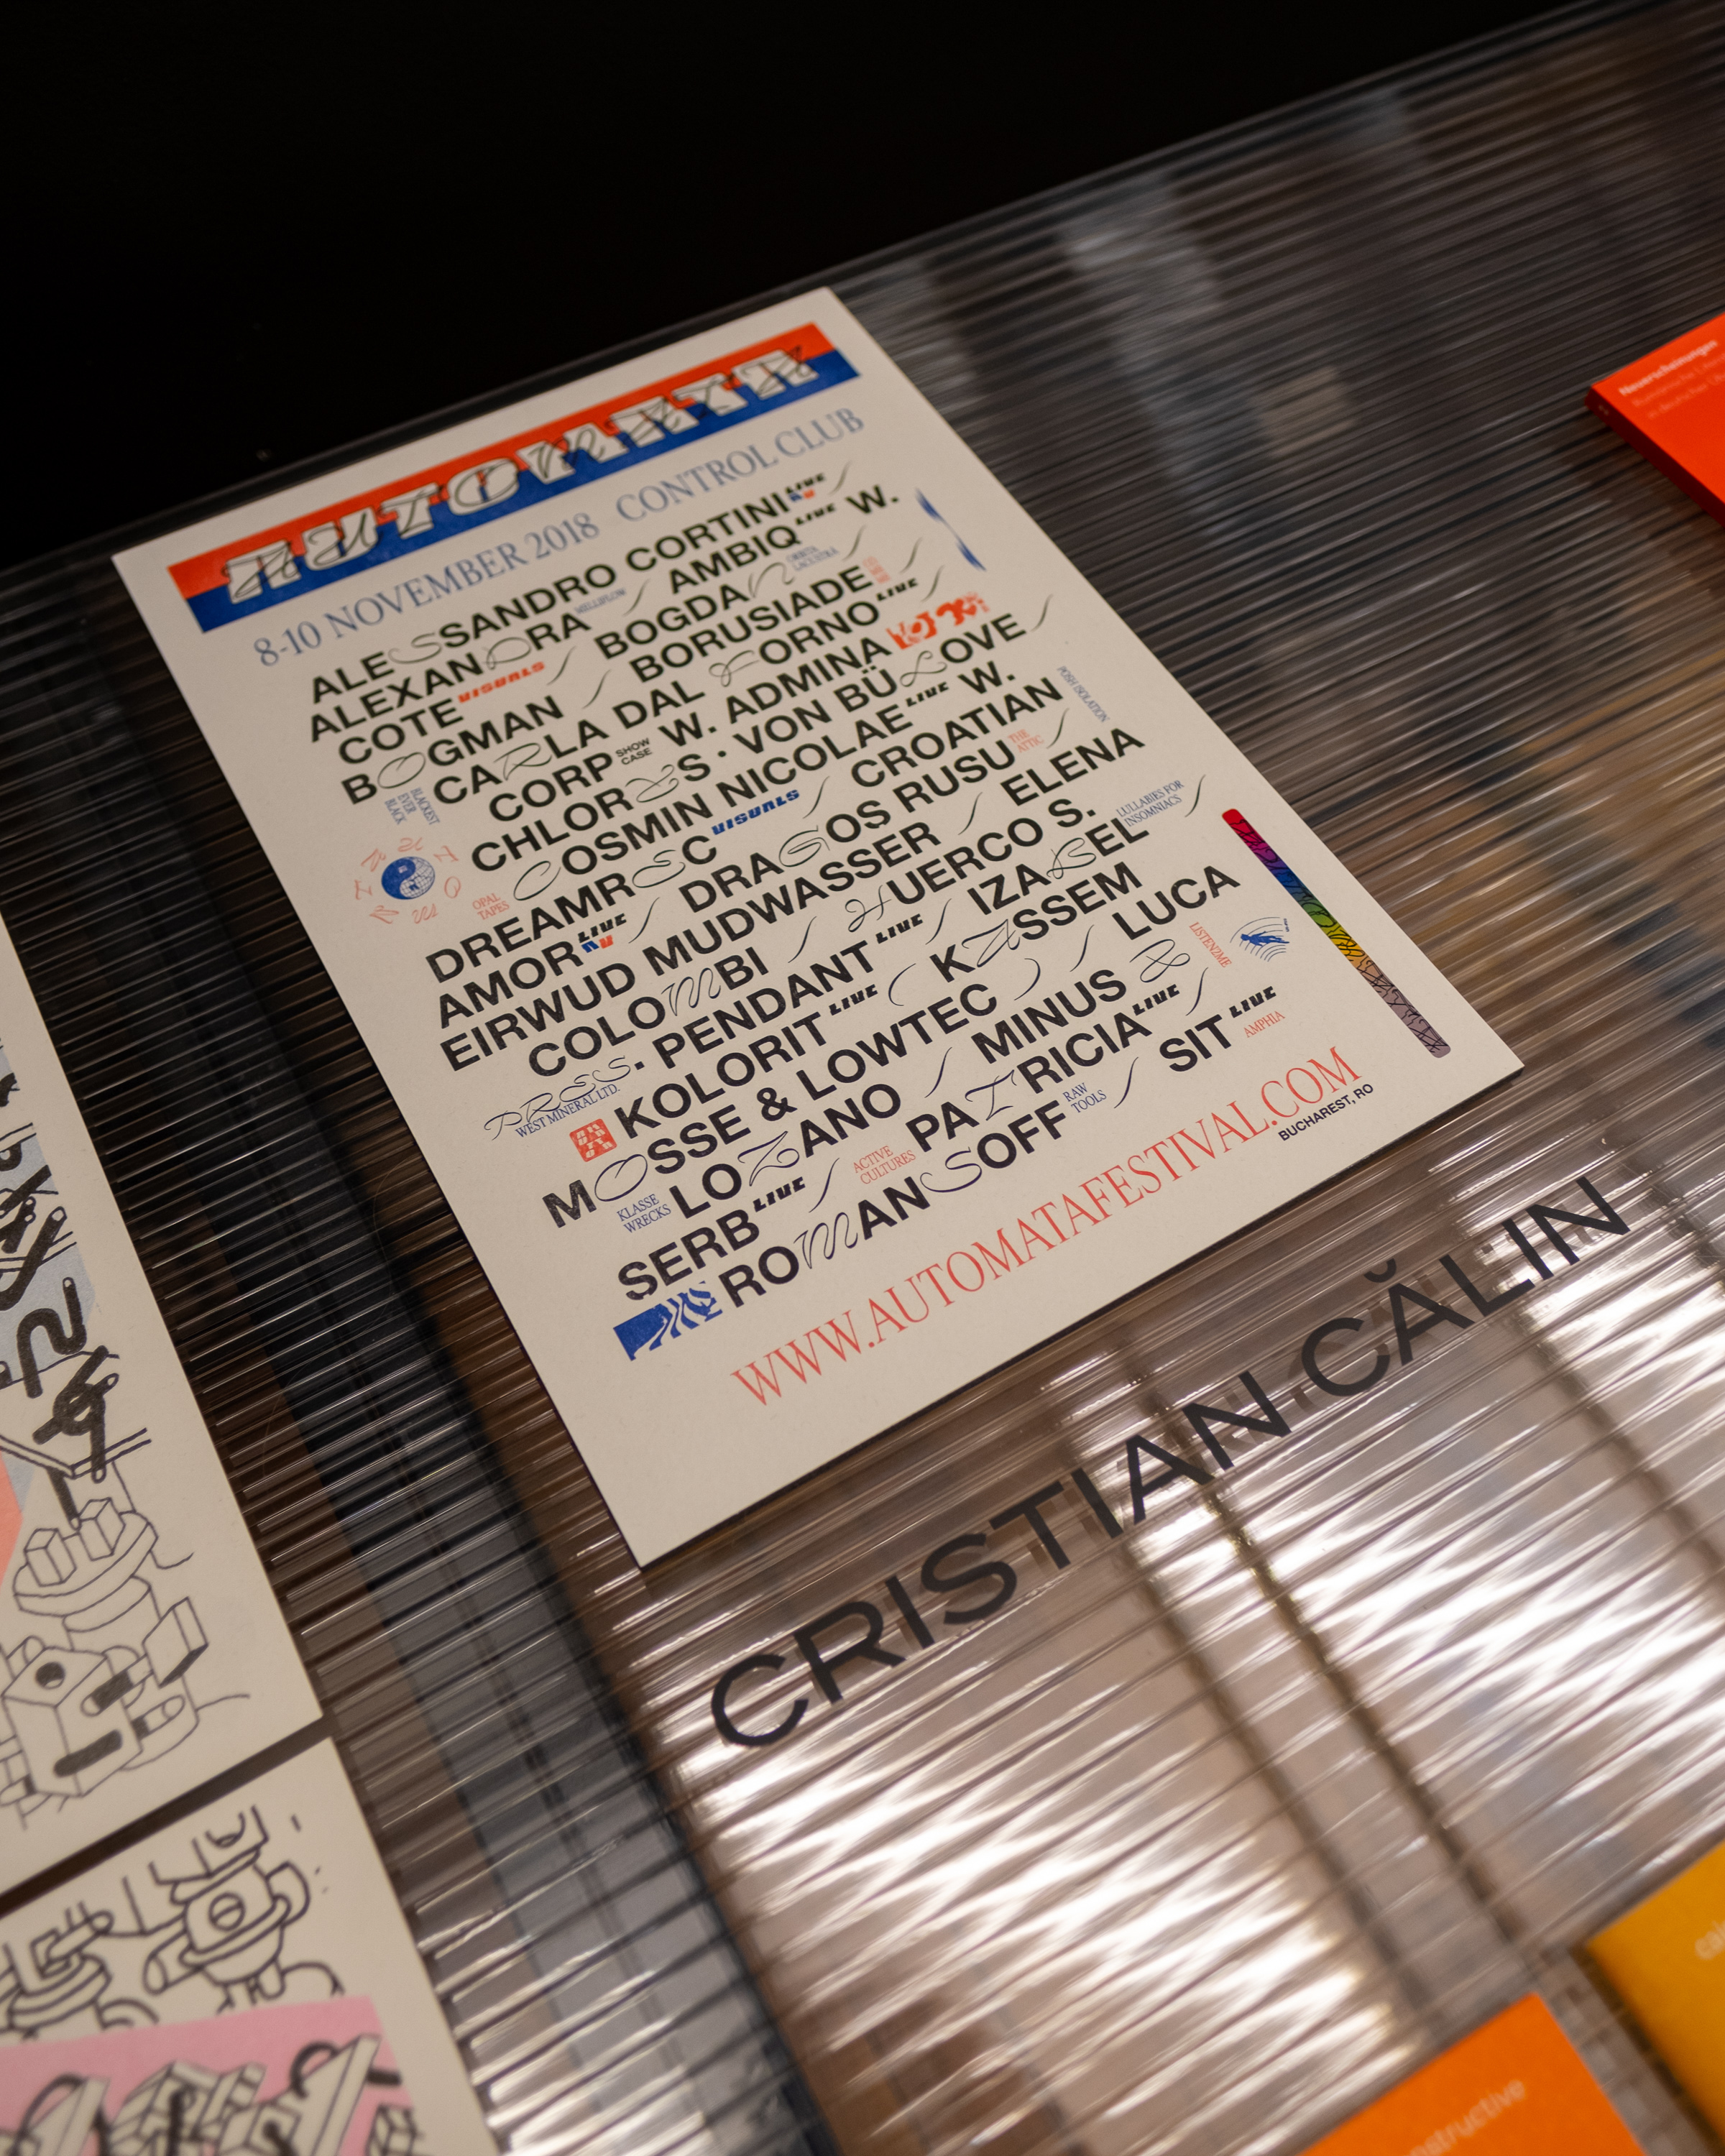 AUTOMATA
8-10 NOVEMBER 2018 CONTROL CLUB
ALESSANDRO CORTINI LIVE /
ALEXANDRA MELLIFLOW / AMBIQ LIVE W.
COTE VISUALS / BOGDAN ORBITA LACUSTRA /
BOGMAN / BORUSIADE /
BLACKEST EVER BLACK CARLA DAL FORNO LIVE /
CORP SHOW CASE W. ADMINA
CHLORYS. VON BÜLOVE /
OPAL TAPES COSMIN NICOLAE LIVE W.
DREAMREC VISUALS / CROATIAN POSH ISOLATION
AMOR LIVE / DRAGOS RUSU THE ATTIC /
EIRWUD MUDWASSER / ELENA
COLOMBI / HUERCO S.
PRES. PENDANT LIVE / IZABEL LULLABIES FOR INSOMNIACS /
WEST MINERAL LTD.
KOLORIT LIVE ( KASSEM
MOSSE & LOWTEC ) / LUCA
KLASSE WRECKS LOZANO / MINUS & LISTEN2ME
SERB LIVE / ACTIVE CULTURES PATRICIA LIVE /
ROMANSOFF RAW TOOLS / SIT LIVE AMPHIA
WWW.AUTOMATAFESTIVAL.COM
BUCHAREST, RO
CRISTIAN CĂLIN
Neuerscheinungen